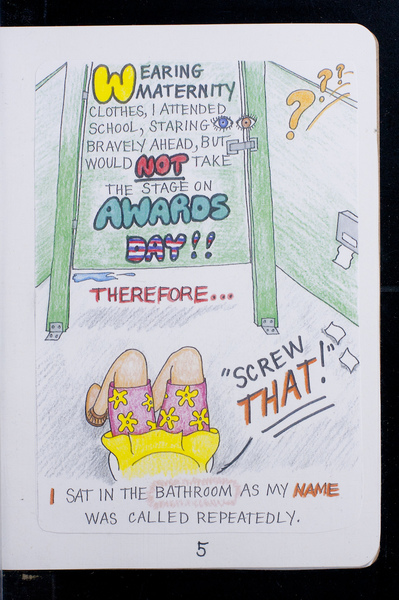 WEARING
MATERNITY
CLOTHES, I ATTENDED
SCHOOL, STARING
BRAVELY AHEAD, BUT
WOULD NOT TAKE
THE STAGE ON
AWARDS
DAY!!
THEREFORE...
? ? ?
"SCREW
THAT!"
I SAT IN THE BATHROOM AS MY NAME
WAS CALLED REPEATEDLY.
5